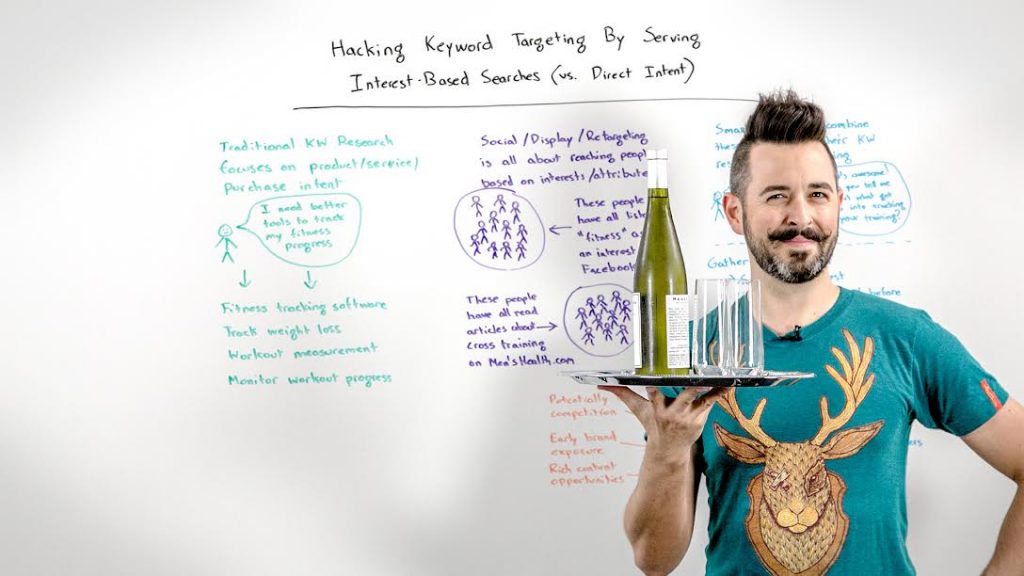 Hacking Keyword Targeting By Serving
Interest-Based Searches (vs. Direct Intent)
Traditional KW Research
focuses on product/service/
purchase intent
I need better
tools to track
my fitness
progress
Fitness tracking software
Track weight loss
Workout measurement
Monitor workout progress
Social/Display/Retargeting
is all about reaching people
based on interests/
These people
have all
"fitness" as
an interest
Facebook
These people
have all read
articles about
cross training
on Men'sHealth.com
combine
KW
awesome!
you tell me
what got
into
your training?
Gather
before
Potentially
competition
Early brand
exposure
Rich content
opportunities